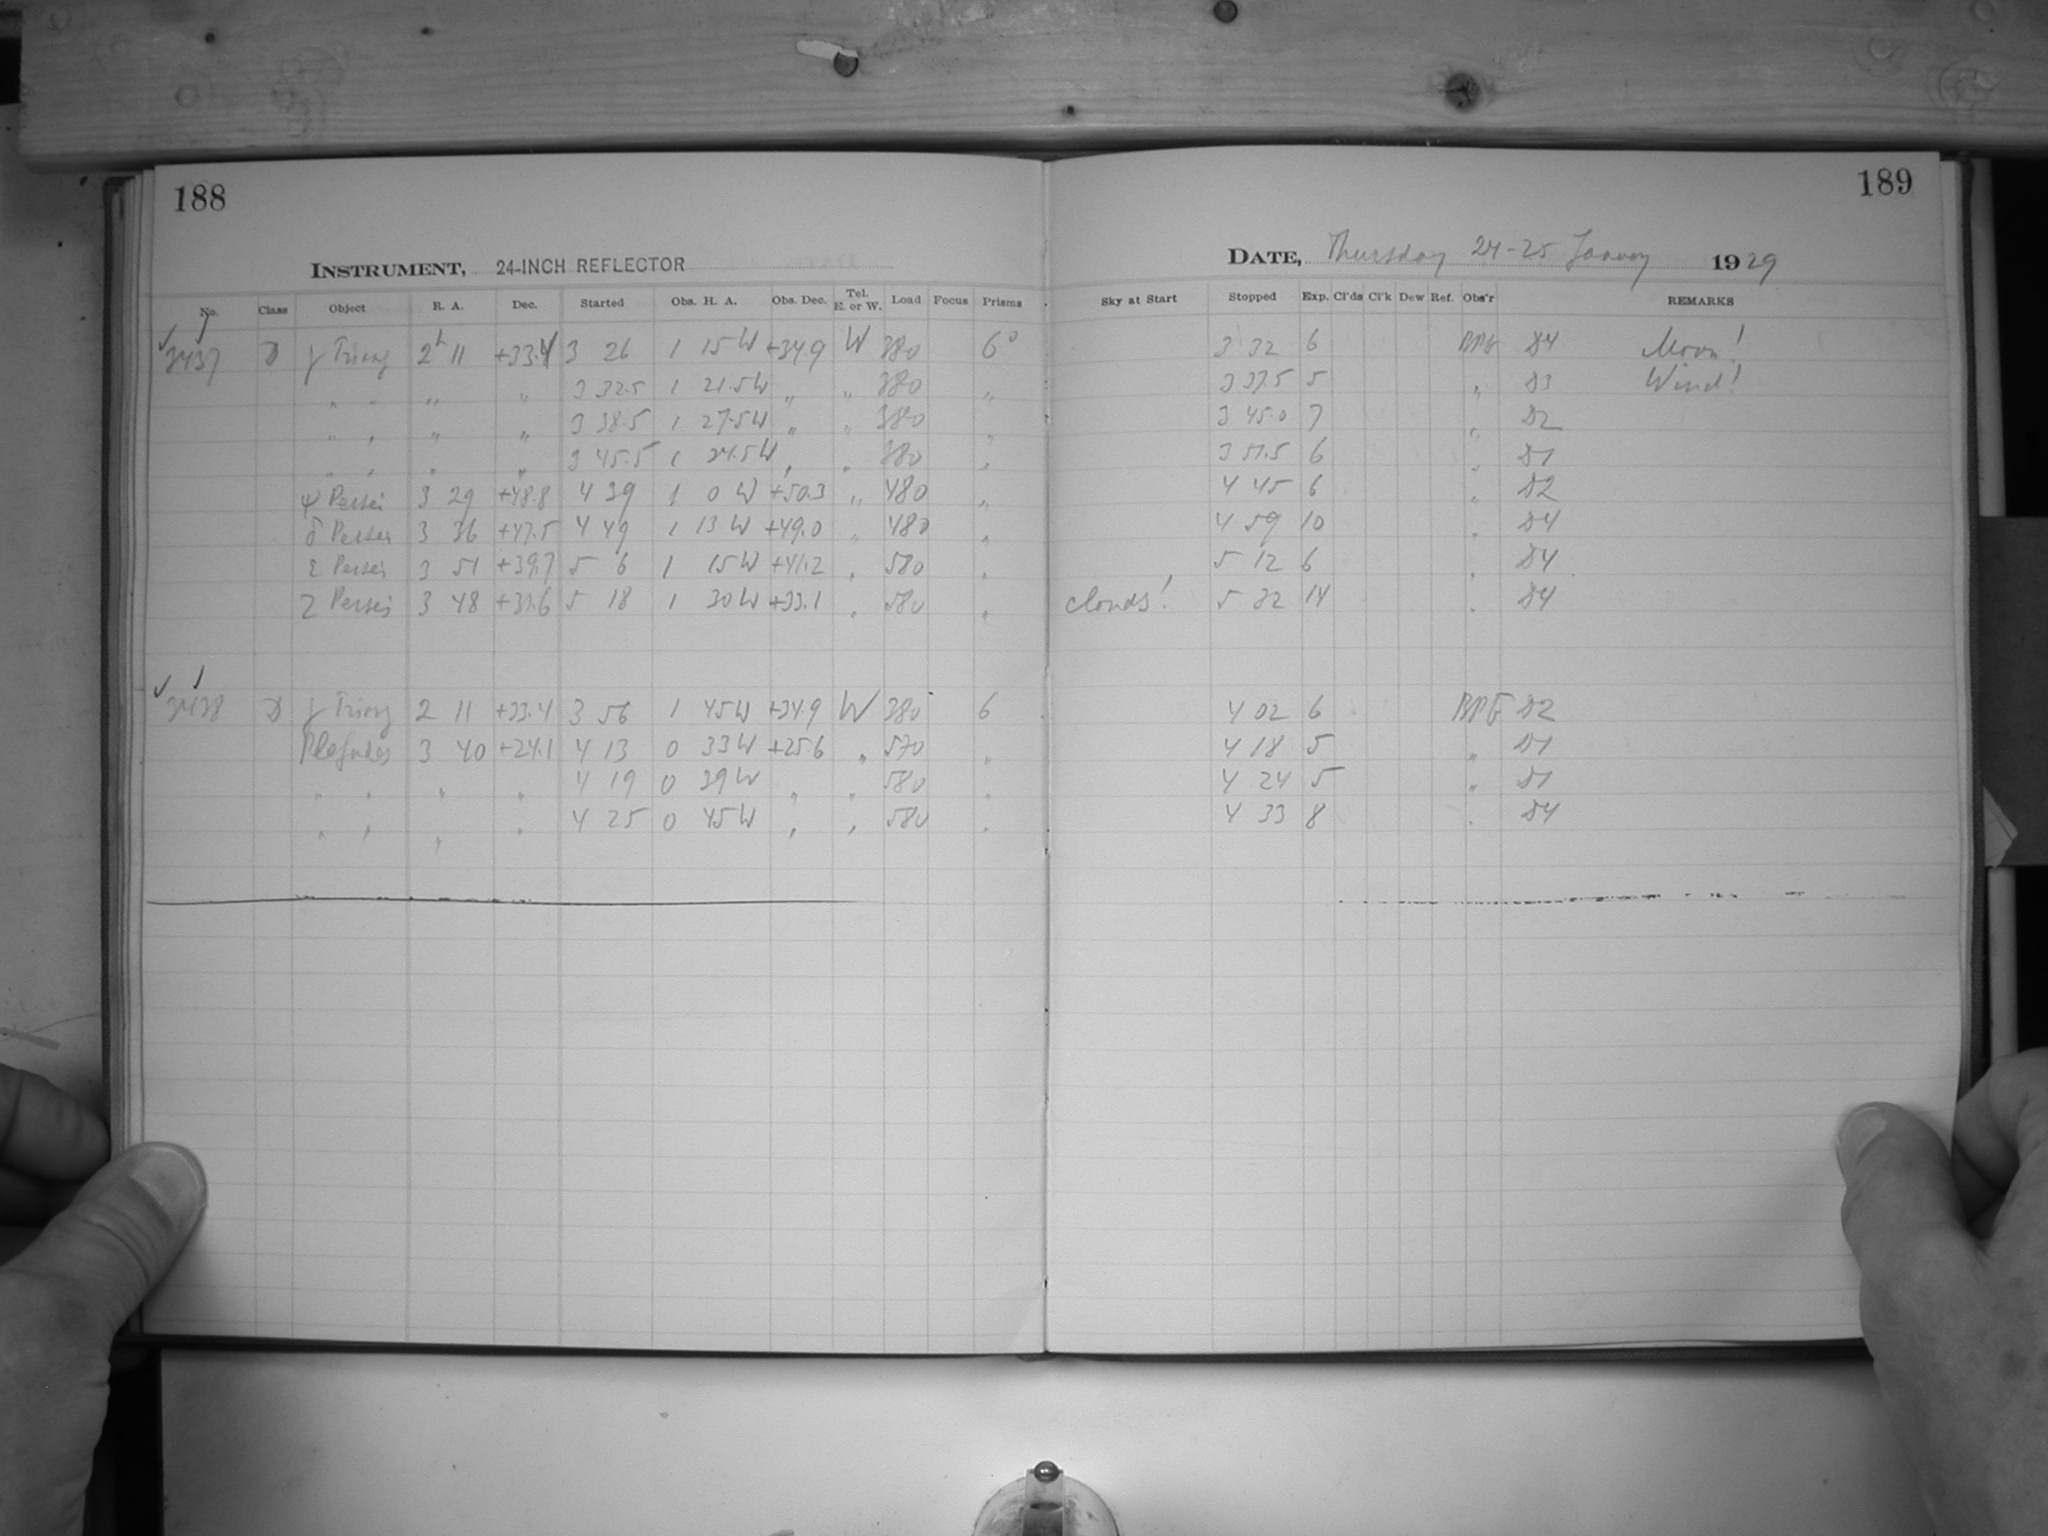 188
189
INSTRUMENT, 24-INCH REFLECTOR
DATE, Thursday 24-25 January 1929
No. Class Object R. A. Dec. Started Obs. H. A. Obs. Dec. Tel. E. or W. Load Focus Prisms Sky at Start Stopped Exp. Cl'ds Cl'k Dew Ref. Obs'r REMARKS
3437 D γ Triang 2h 11 +33.4 3 26 1 15 W +34.9 W 380 6° 3 32 6 D4 Moon!
" " " " 3 32.5 1 21.5 W " " 380 " 3 37.5 5 " D3 Wind!
" " " " 3 38.5 1 27.5 W " " 380 " 3 45.0 7 " D2
" " " " 3 45.5 1 34.5 W " " 380 " 3 51.5 6 " D1
ψ Persei 3 29 +48.8 4 39 1 0 W +50.3 " 480 " 4 45 6 " D2
δ Persei 3 36 +47.5 4 49 1 13 W +49.0 " 480 " 4 59 10 " D4
ε Persei 3 51 +39.7 5 6 1 15 W +41.2 " 580 " 5 12 6 " D4
ζ Persei 3 48 +31.6 5 18 1 30 W +33.1 " 580 " clouds! 5 32 14 " D4
3438 D γ Triang 2 11 +33.4 3 56 1 45 W +34.9 W 380 6 4 02 6 D2
Pleiades 3 40 +24.1 4 13 0 33 W +25.6 " 570 " 4 18 5 " D1
" " " " 4 19 0 39 W " " 580 " 4 24 5 " D1
" " " " 4 25 0 45 W " " 580 " 4 33 8 " D4